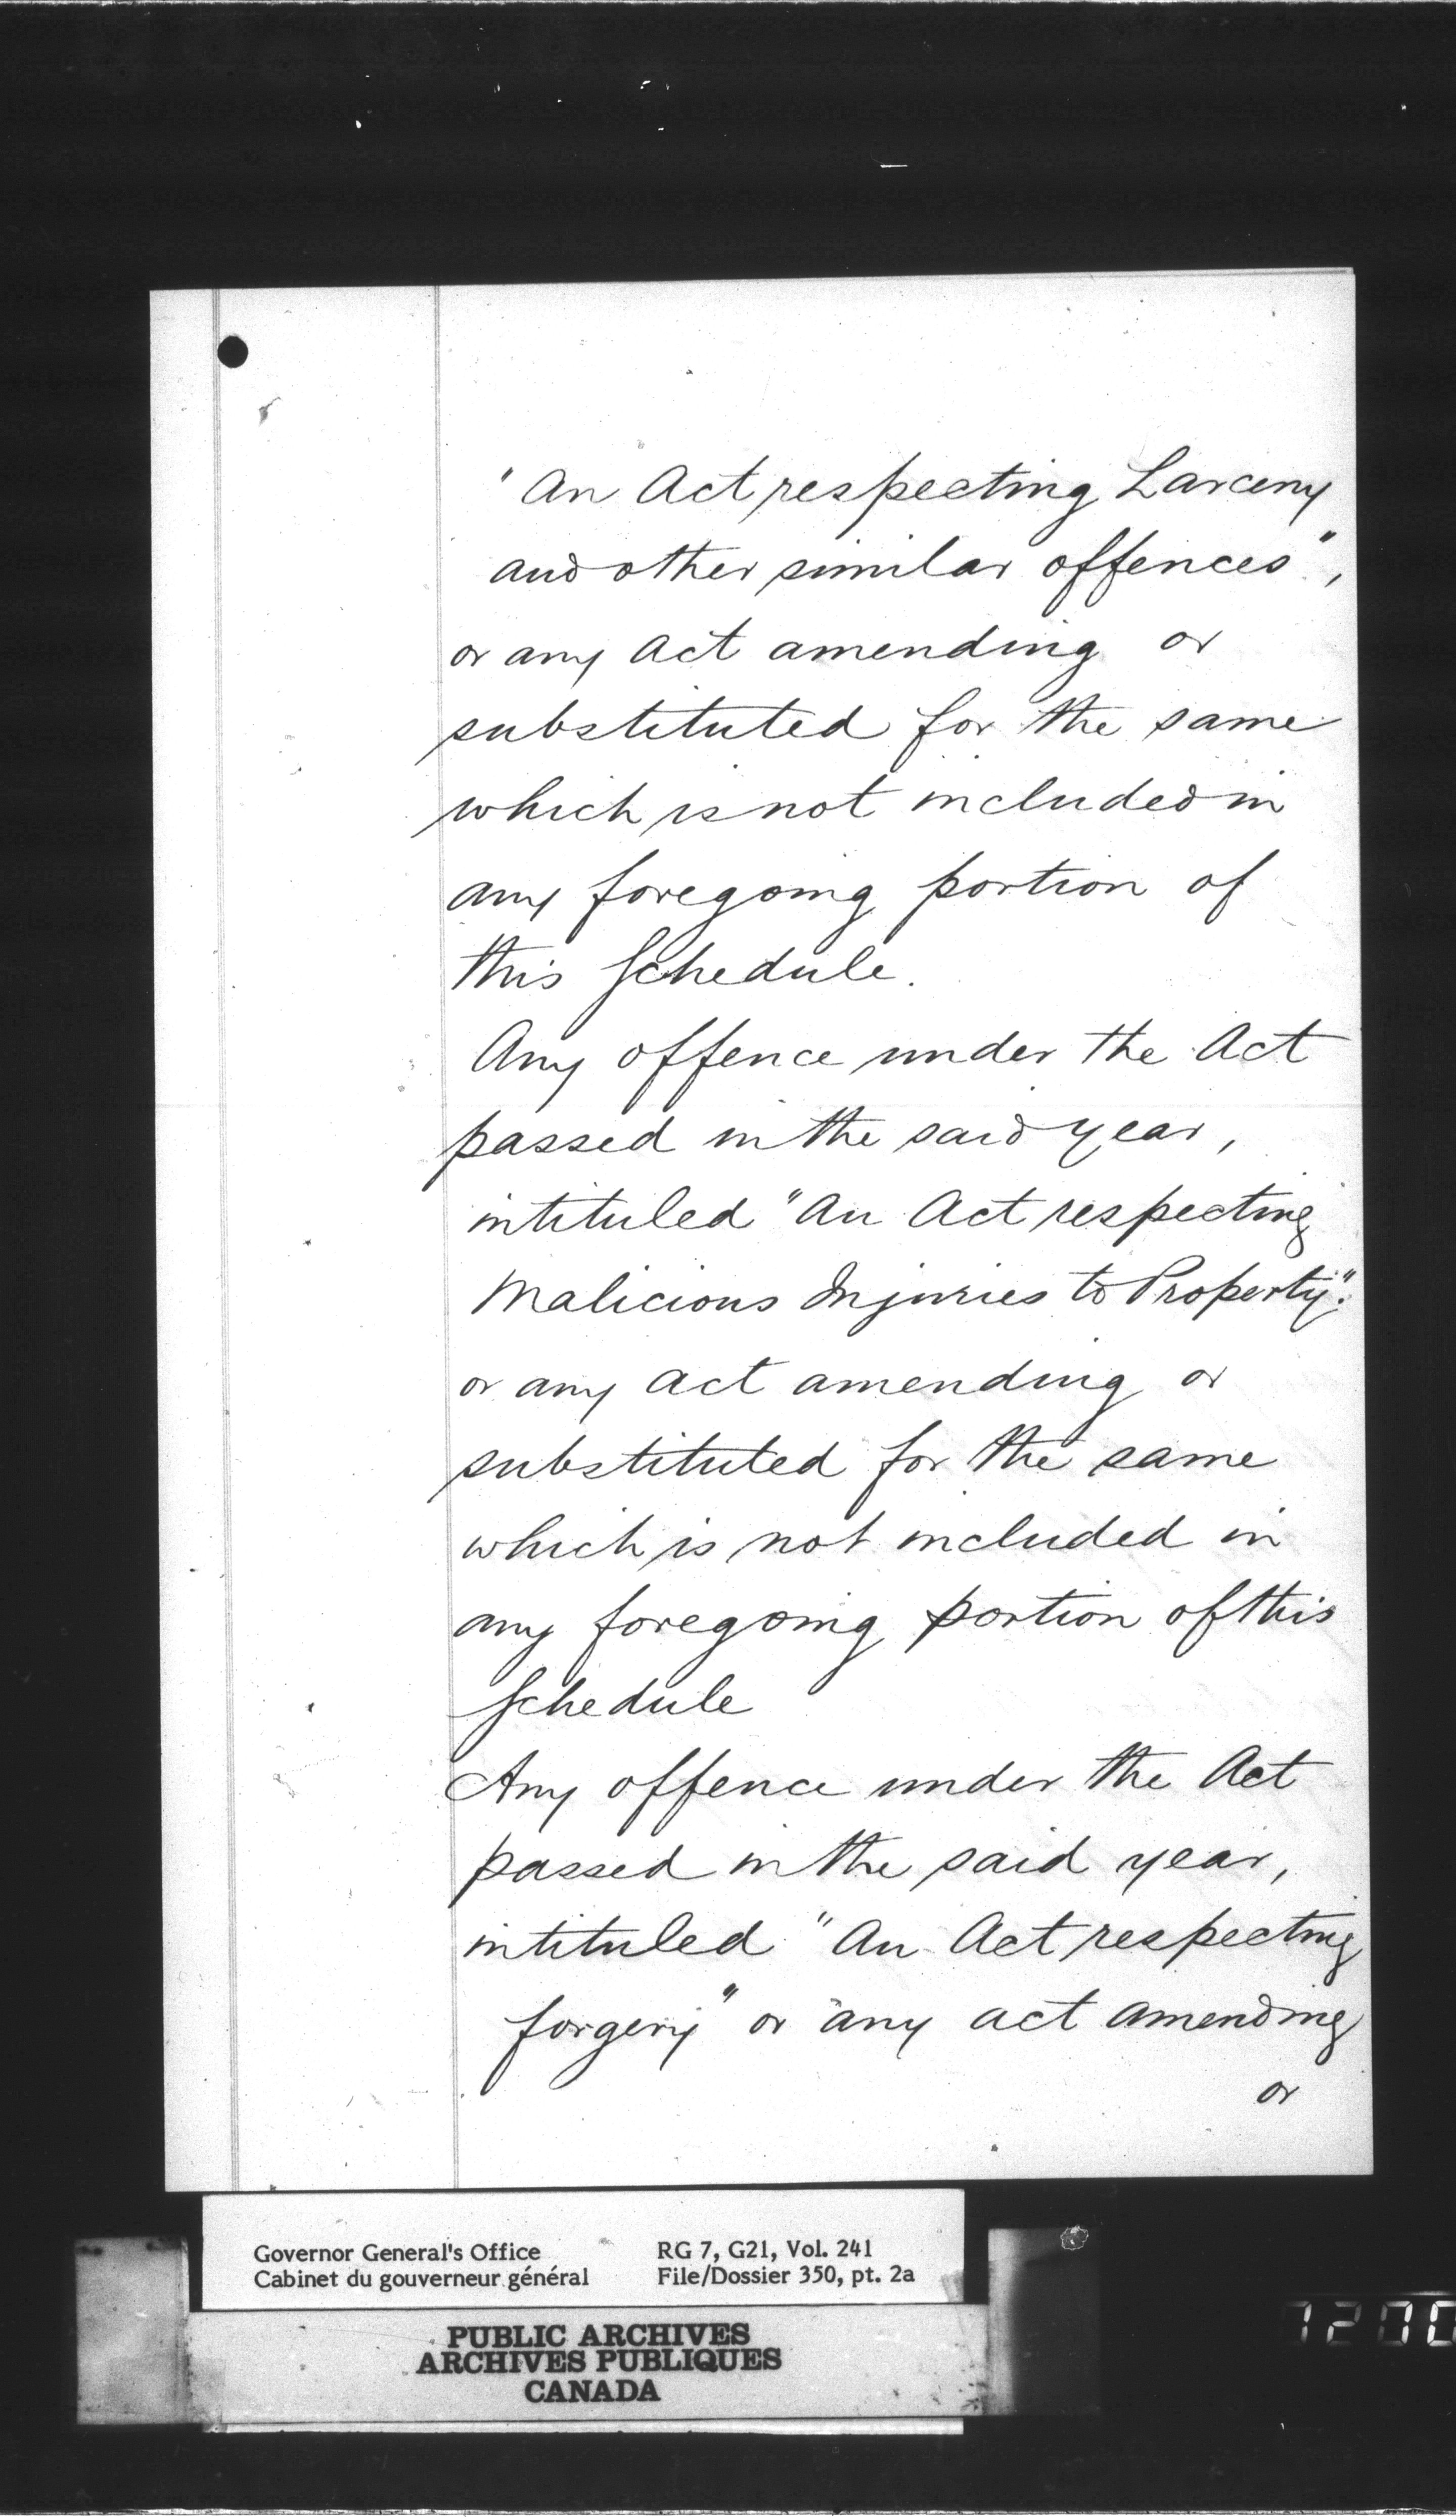 "An Act respecting Larceny
and other similar offences",
or any act amending or
substituted for the same
which is not included in
any foregoing portion of
this Schedule.
Any offence under the Act
passed in the said year,
intituled "An Act respecting
Malicious Injuries to Property".
or any act amending or
substituted for the same
which is not included in
any foregoing portion of this
Schedule
Any offence under the Act
passed in the said year,
intituled "An Act respecting
forgery" or any act amending
or
Governor General's Office RG 7, G21, Vol. 241
Cabinet du gouverneur général File/Dossier 350, pt. 2a
PUBLIC ARCHIVES
ARCHIVES PUBLIQUES
CANADA
1200